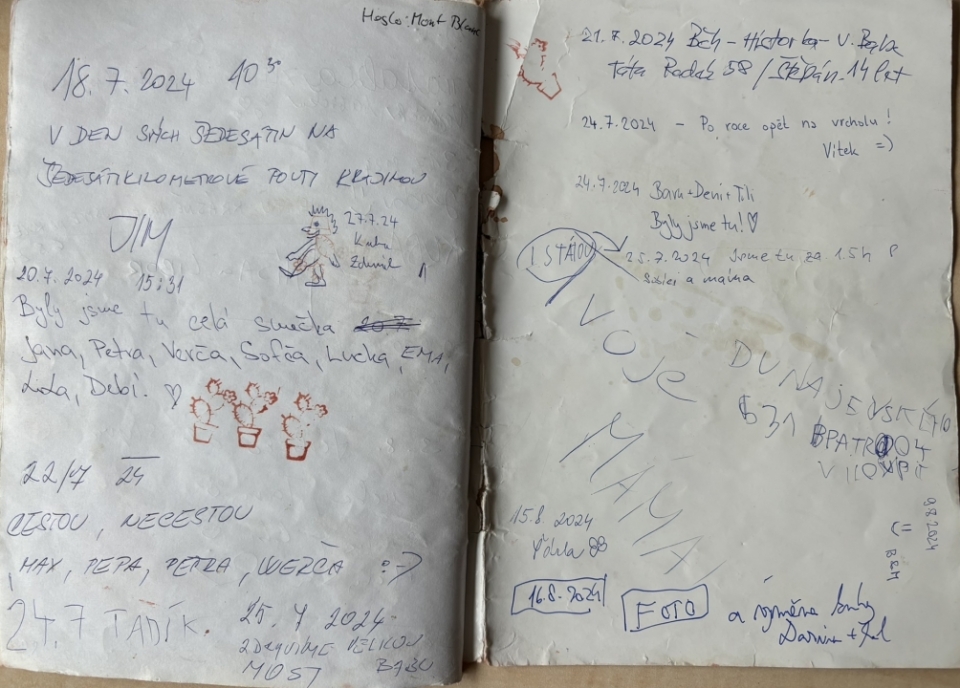 Heslo: Mont Blanc
18.7.2024 10³⁰
V DEN SVÝCH ŠEDESÁTIN NA
ŠEDESÁTIKILOMETROVÉ POUTI KRAJINOU
JIM
27.7.24
Kuba
20.7.2024 15:31
Byly jsme tu celá smečka
Jana, Petra, Verča, Sofča, Lucka, EMA,
Lola, Debi. ♡
22/7 24
CESTOU, NECESTOU
MAX, PEPA, PETRA, VERČA :-)
24.7 TADÍK.
25.7 2024
ZDRAVÍME VELIKOU
MOST BABU
21.7.2024 Běh - Historka - V. Baba
Táta Radek 58 / Štěpán 14 let
24.7.2024 - Po roce opět na vrcholu!
Vítek =)
24.7.2024 Baru + Deni + Tili
Byly jsme tu! ♡
I S TÁTOU
25.7.2024 Jsme tu za 1.5h
a máma
VOJE
MÁMA
DUNAJEVSKÉHO
531
15.8.2024
9.8.2024
BRM
16.8.2024
FOTO a výměna knihy